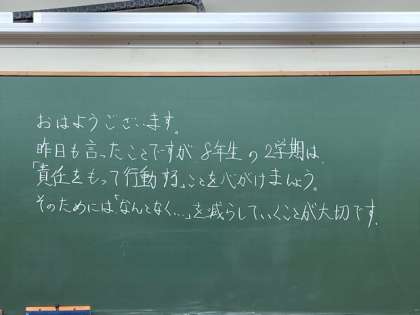 おはようございます。
昨日も言ったことですが、8年生の2学期は、
「責任をもって行動する」ことを心がけましょう。
そのためには「なんとなく…」を減らしていくことが大切です。